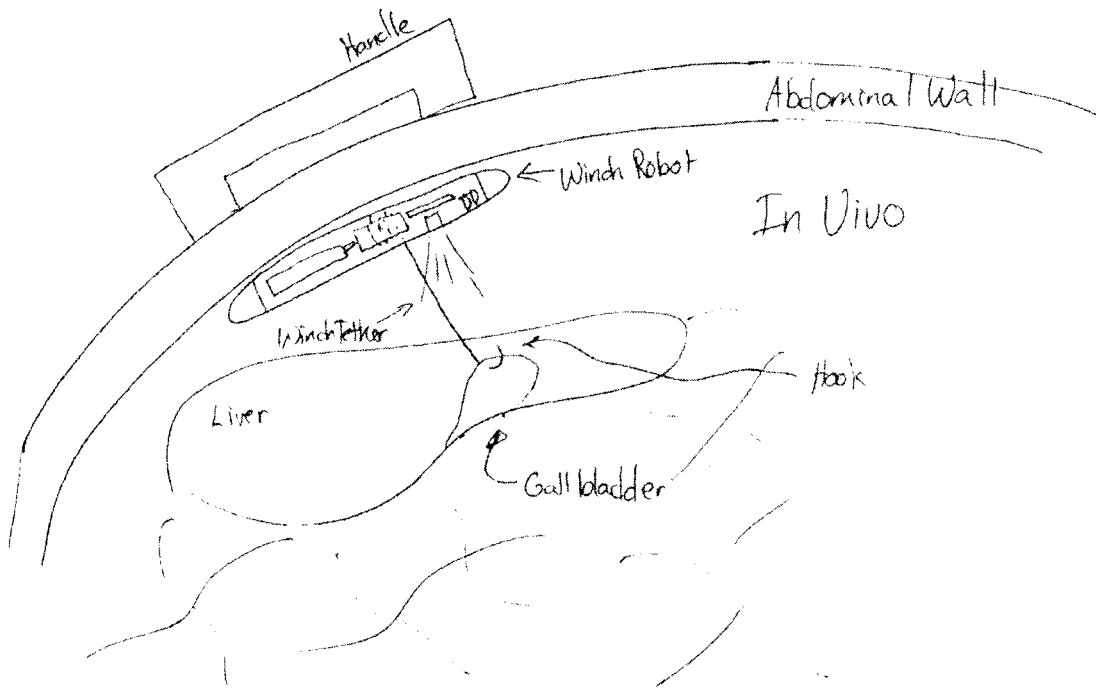 Handle
Abdominal Wall
Winch Robot
In Vivo
Winch Tether
Hook
Liver
Gallbladder